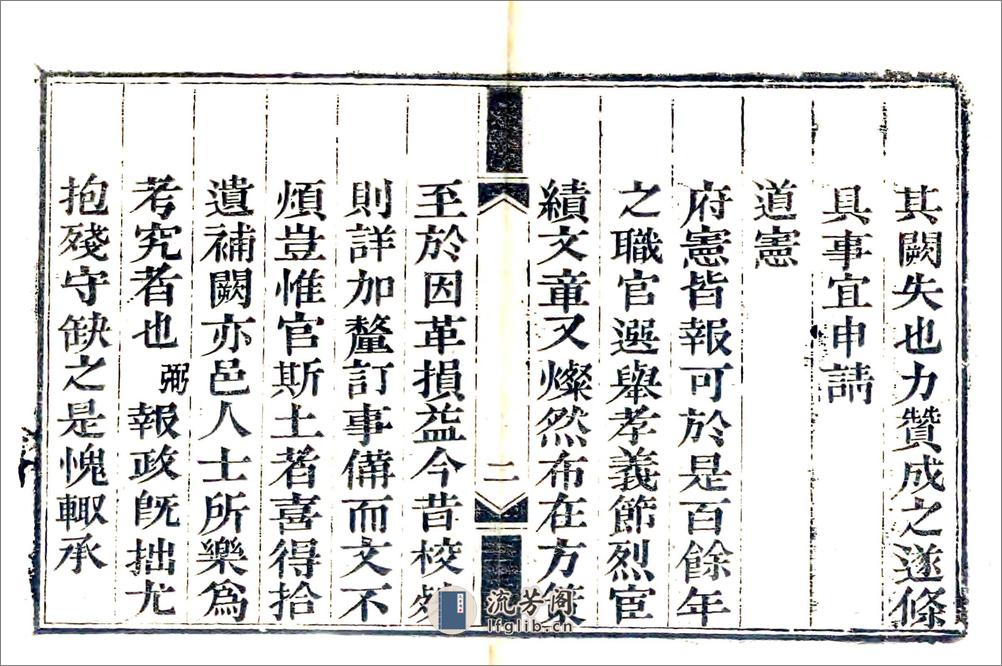 其闕失也力贊成之遂條
具事宜申請
道憲
府憲皆報可於是百餘年
之職官選舉孝義節烈宦
績文章又燦然布在方策
二
至於因革損益今昔校
則詳加釐訂事備而文不
煩豈惟官斯土者喜得拾
遺補闕亦邑人士所樂為
考究者也弼報政旣拙尤
抱殘守缺之是愧輙承
流芳阁
lfglib.cn